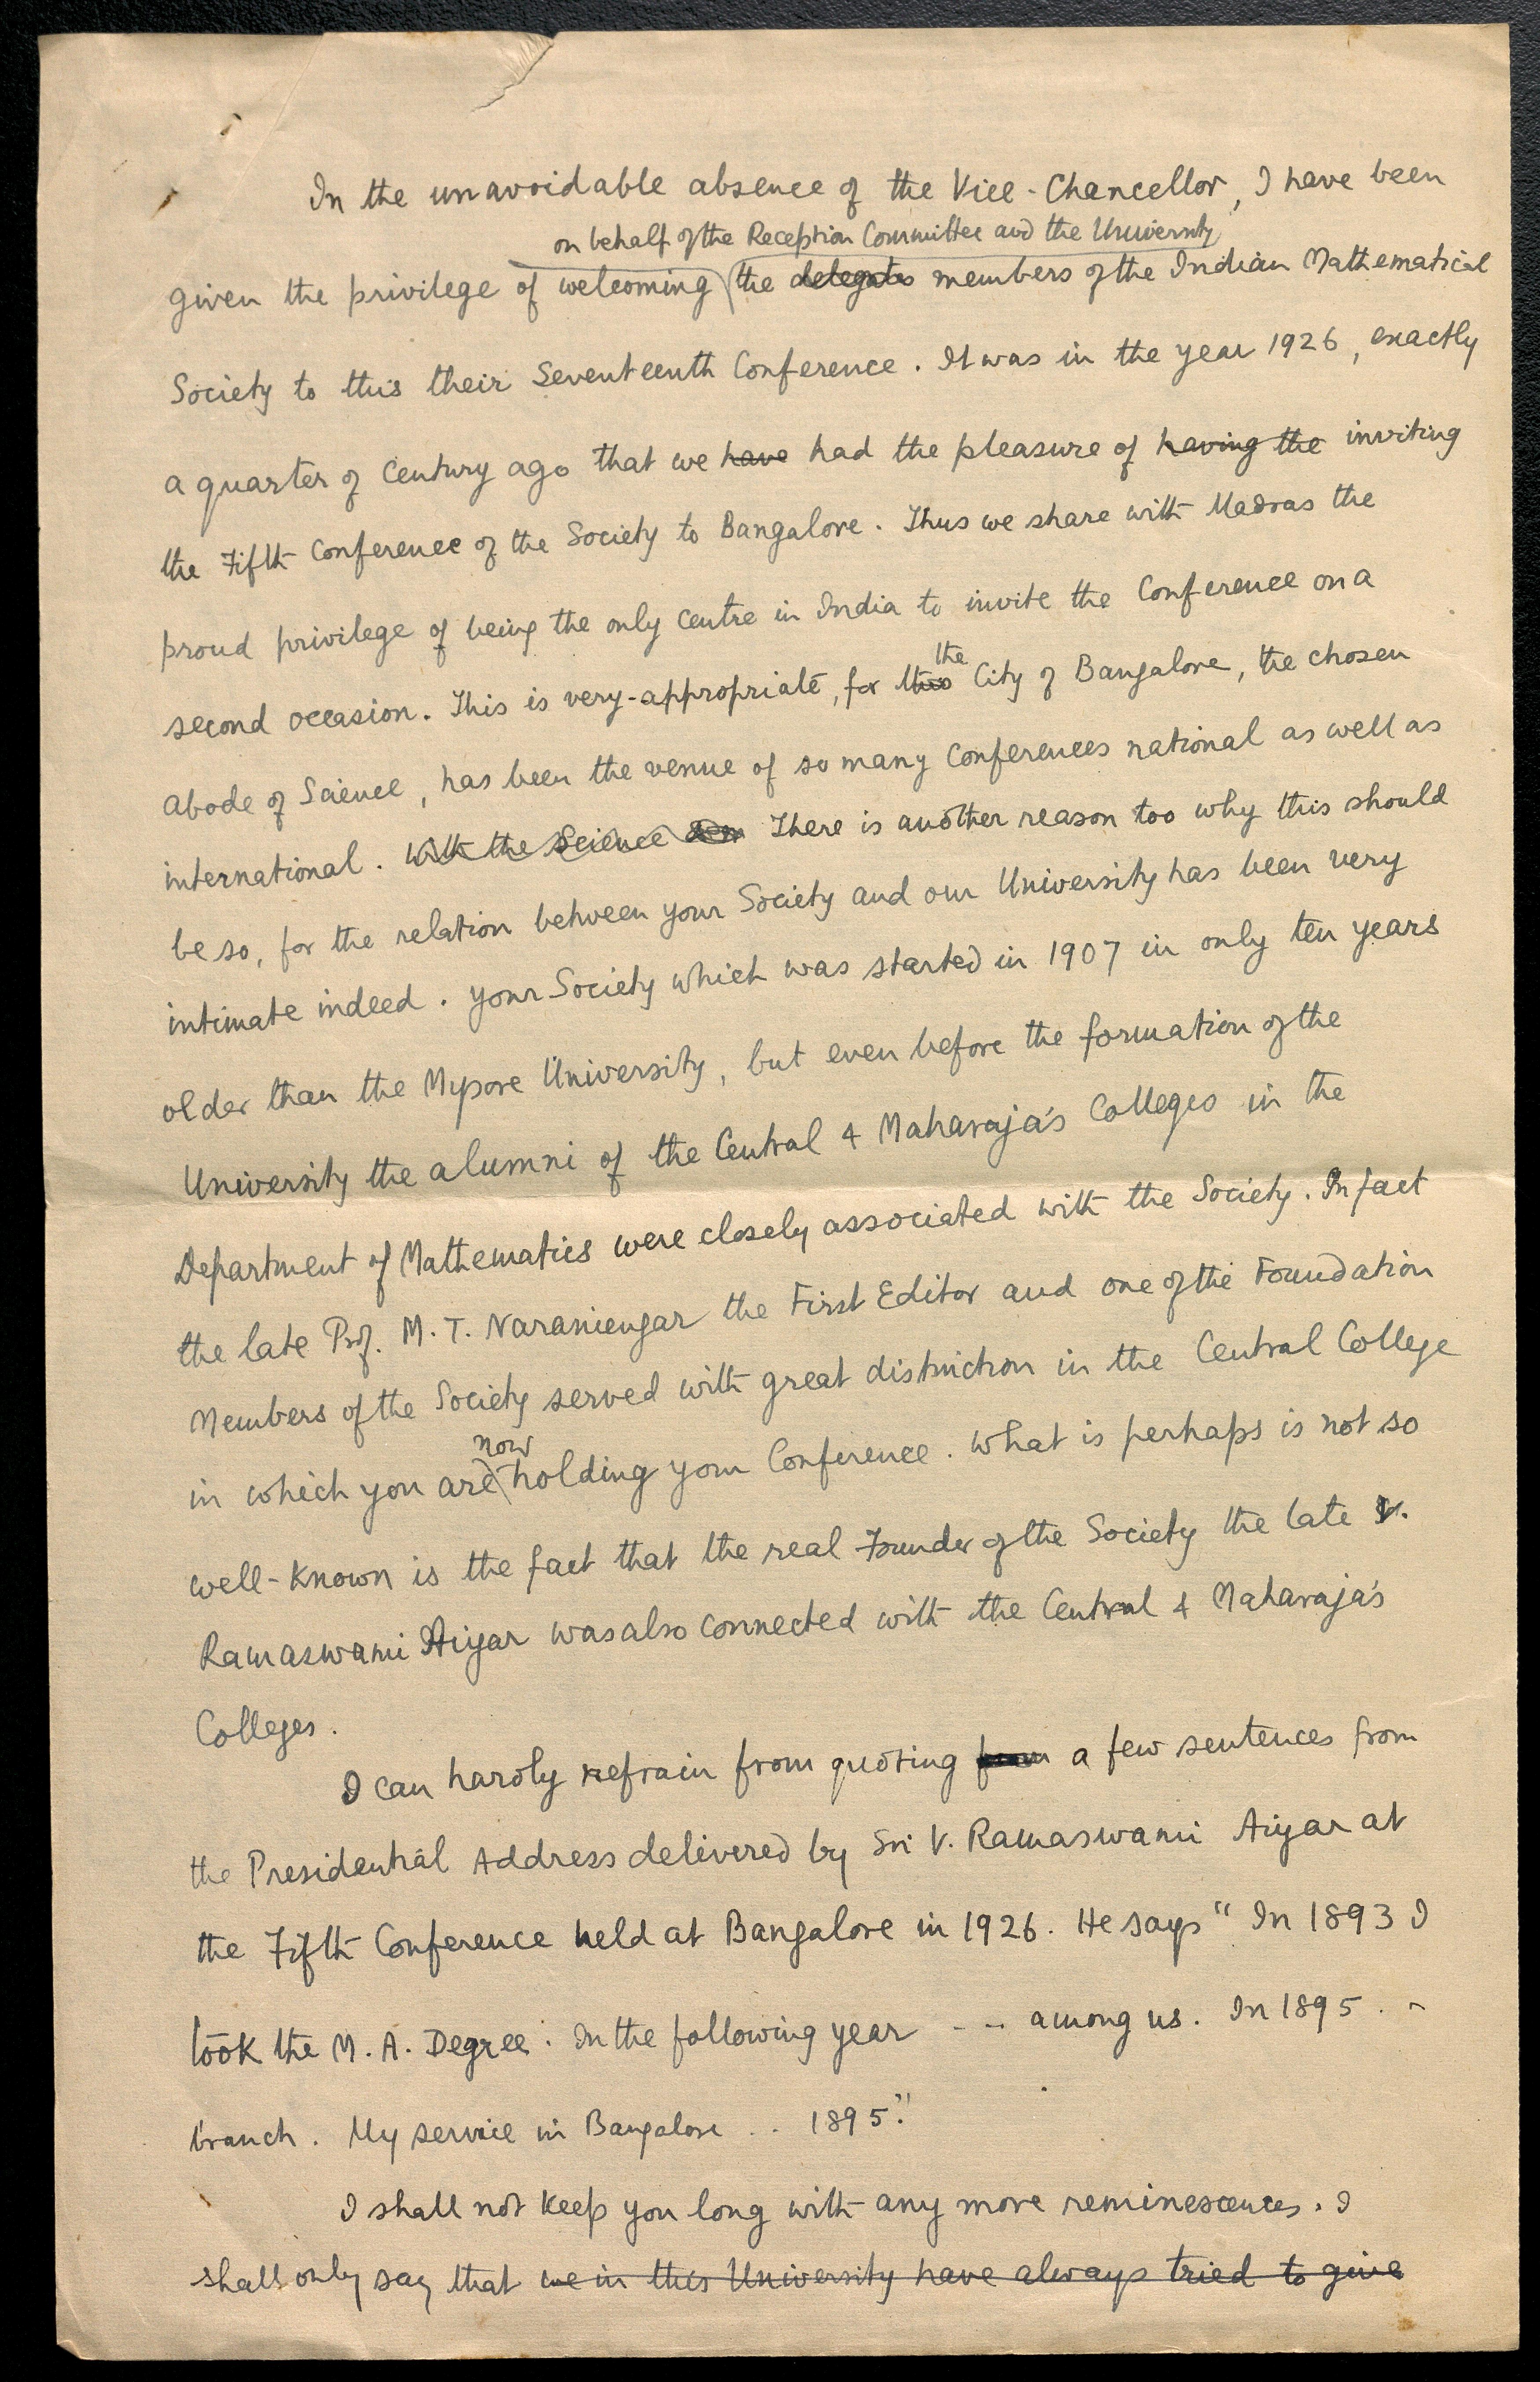 In the unavoidable absence of the Vice-Chancellor, I have been
on behalf of the Reception Committee and the University
given the privilege of welcoming the delegates members of the Indian Mathematical
Society to this their Seventeenth Conference. It was in the year 1926, exactly
a quarter of Century ago that we have had the pleasure of having the inviting
the Fifth Conference of the Society to Bangalore. Thus we share with Madras the
proud privilege of being the only centre in India to invite the Conference on a
the
second occasion. This is very-appropriate, for this City of Bangalore, the chosen
abode of Science, has been the venue of so many Conferences national as well as
international. With the Science There is another reason too why this should
be so, for the relation between your Society and our University has been very
intimate indeed. your Society which was started in 1907 in only ten years
older than the Mysore University, but even before the formation of the
University the alumni of the Central & Maharaja's Colleges in the
Department of Mathematics were closely associated with the Society. In fact
the late Prof. M. T. Naraniengar the First Editor and one of the Foundation
Members of the Society served with great distinction in the Central College
now
in which you are holding your Conference. What is perhaps is not so
well-known is the fact that the real Founder of the Society the late V.
Ramaswami Aiyar was also connected with the Central & Maharaja's
Colleges.
I can hardly refrain from quoting from a few sentences from
the Presidential Address delivered by Sri V. Ramaswami Aiyar at
the Fifth Conference held at Bangalore in 1926. He says "In 1893 I
took the M. A. Degree. In the following year --- among us. In 1895 . -
branch. My service in Bangalore .. 1895."
I shall not keep you long with any more reminescences. I
shall only say that we in this University have always tried to give